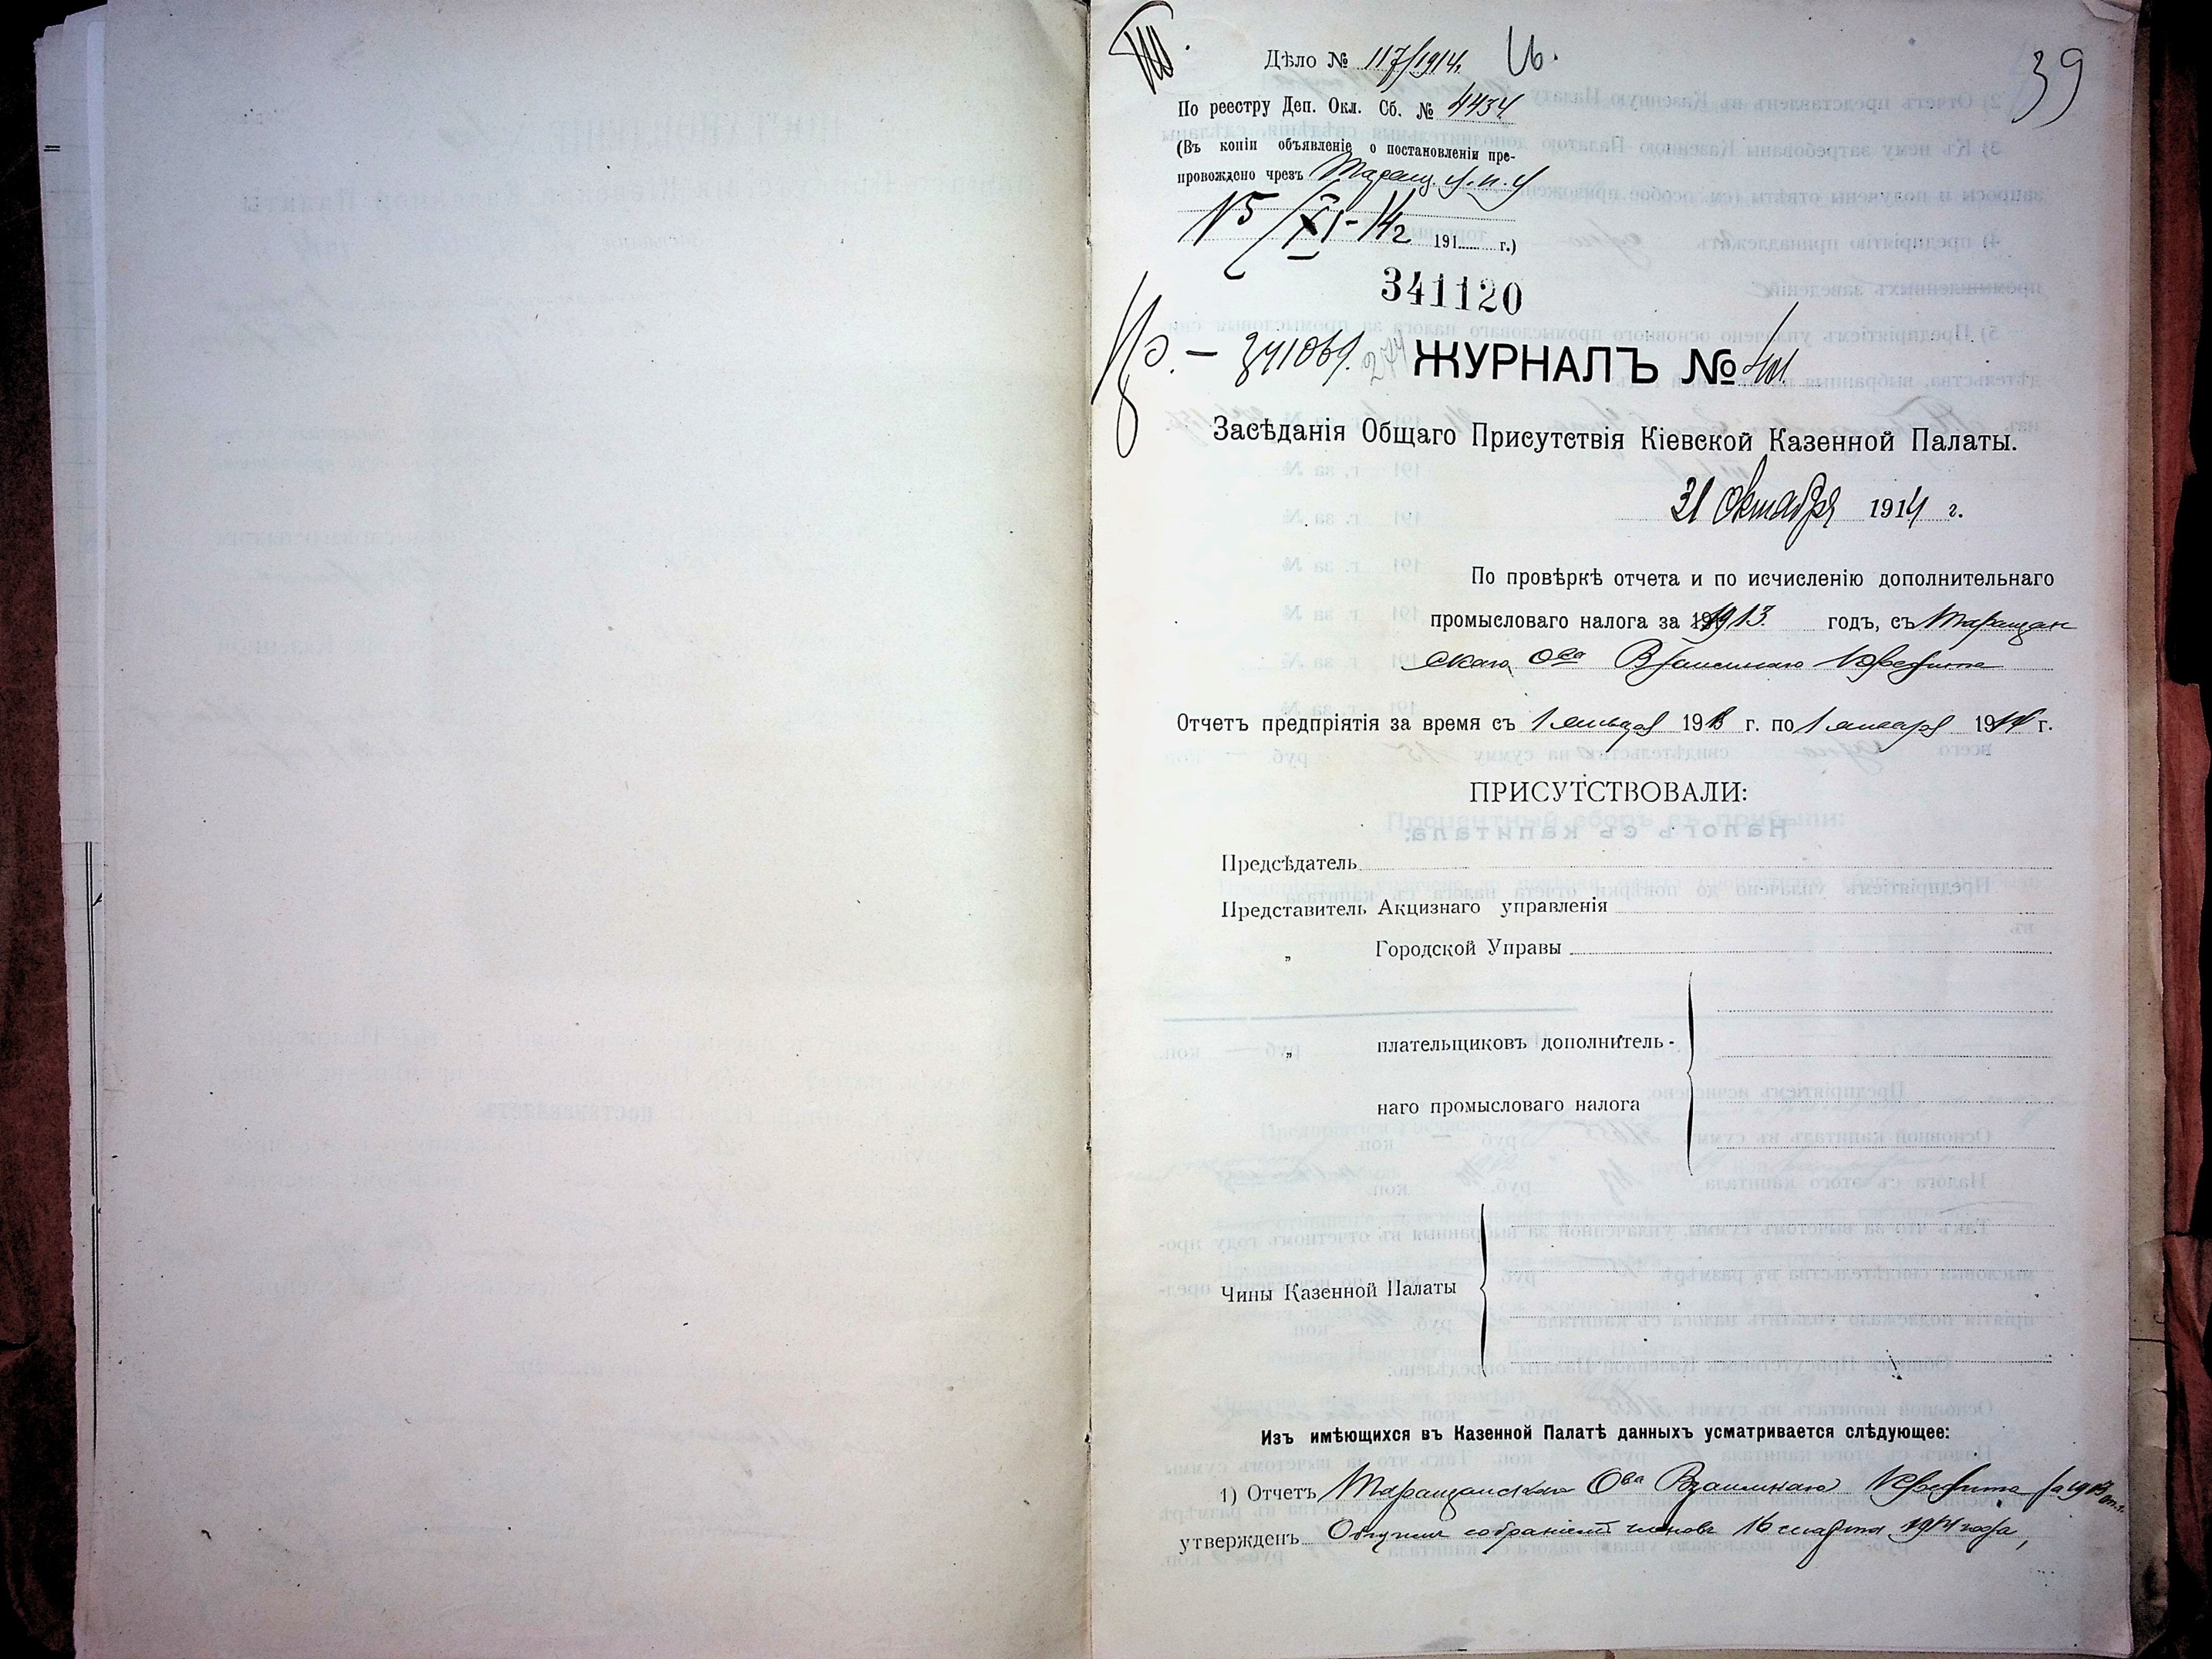 39
Дѣло № 117/1914.
По реестру Деп. Окл. Сб. № 4434
(Въ копіи объявленіе о постановленіи пре-
провождено чрезъ Таращ. У. п. У
191 г.)
341120
ЖУРНАЛЪ №
Засѣданія Общаго Присутствія Кіевской Казенной Палаты.
31 Октября 1914 г.
По провѣркѣ отчета и по исчисленію дополнительнаго
промысловаго налога за 1913 годъ, съ Таращан
скаго О-ва Взаимнаго Кредита
Отчетъ предпріятія за время съ 1 января 1913 г. по 1 января 1914 г.
ПРИСУТСТВОВАЛИ:
Предсѣдатель
Представитель Акцизнаго управленія
„ Городской Управы
„ плательщиковъ дополнитель-
наго промысловаго налога
Чины Казенной Палаты
Изъ имѣющихся въ Казенной Палатѣ данныхъ усматривается слѣдующее:
1) Отчетъ Таращанскаго О-ва Взаимнаго Кредита за 1913
утвержденъ Общимъ собраніемъ членовъ 16 марта 1914 года,